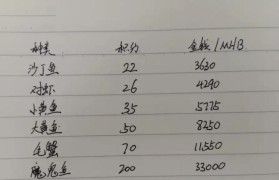 种类 积分 金钱/MHB
沙丁鱼 22 3630
对虾 26 4290
小黄鱼 35 5775
大黄鱼 50 8250
毛蟹 70 11550
魔鬼鱼 200 33000